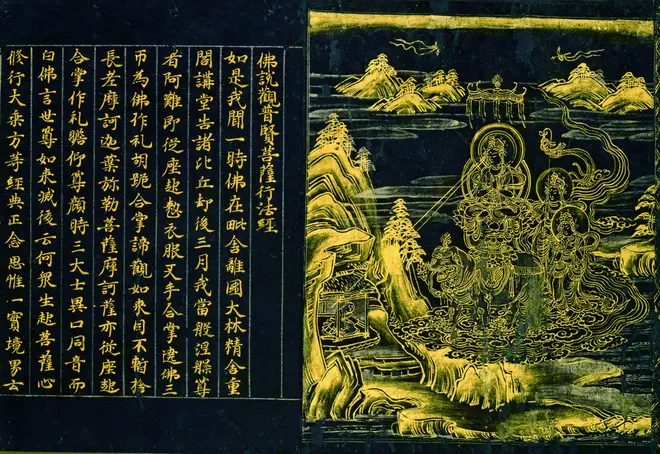 佛說觀普賢菩薩行法經
如是我聞一時佛在毗舍離國大林精舍重
閣講堂告諸比丘却後三月我當般涅槃尊
者阿難即從座起整衣服叉手合掌遶佛三
帀為佛作礼胡跪合掌諦觀如來目不暫捨
長老摩訶迦葉弥勒菩薩摩訶薩亦從座起
合掌作礼瞻仰尊顔時三大士異口同音而
白佛言世尊如來滅後云何衆生起菩薩心
修行大乘方等經典正念思惟一實境界云